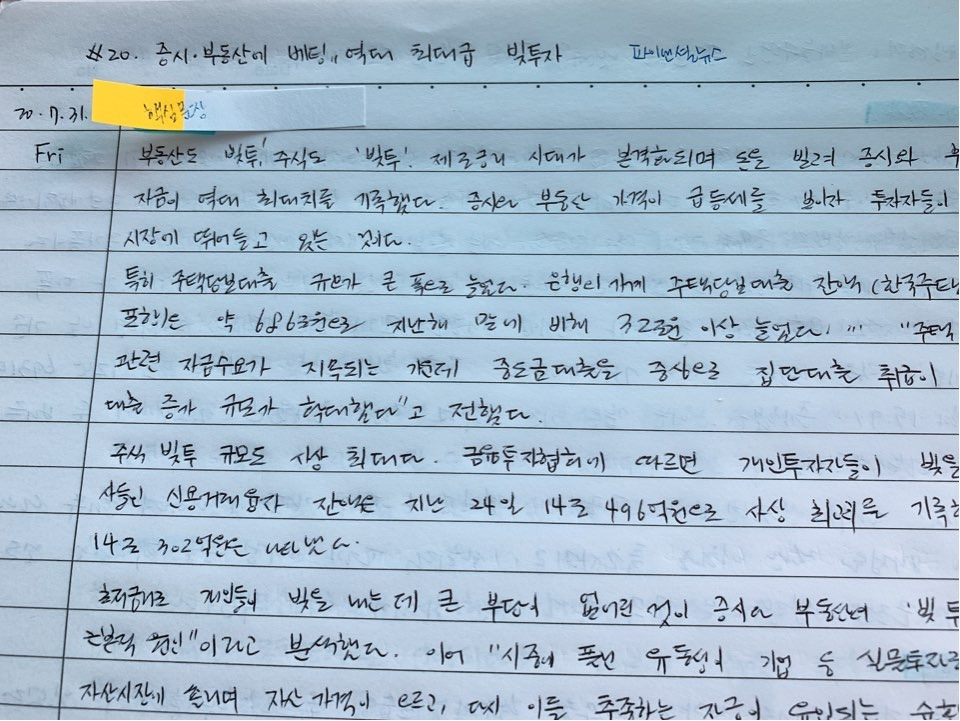 #20. 증시·부동산에 베팅,, 역대 최대급 빚투자 파이낸셜뉴스
20.7.31. 핵심문장
Fri 부동산도 빚투! 주식도 '빚투' 제로금리 시대가 본격화되며 돈을 빌려 증시와
자금이 역대 최대치를 기록했다. 증시와 부동산 가격이 급등세를 보이자 투자자들이
시장에 뛰어들고 있는 것이다.
특히 주택담보대출 규모가 큰 폭으로 늘었다. 은행의 가계 주택담보대출 잔액 (한국주택
포함)은 약 686조원으로 지난해 말에 비해 32조원 이상 늘었다. … "주택
관련 자금수요가 지목되는 가운데 중도금대출을 중심으로 집단대출 취급이
대출 증가 규모가 확대했다"고 전했다.
주식 빚투 규모도 사상 최대다. 금융투자협회에 따르면 개인투자자들이 빚을
사들인 신용거래융자 잔액은 지난 24일 14조 496억원으로 사상 최고치를 기록
14조 302억원을 나타냈다.
초저금리로 개인들이 빚을 내는데 큰 부담이 없어진 것이 증시와 부동산의 '빚투
근본적 원인"이라고 분석했다. 이어 "시중의 풀린 유동성이 기업 등 실물투자로
자산시장에 쏠리며 자산 가격이 오르고, 다시 이를 추종하는 자금이 유입되는 순환